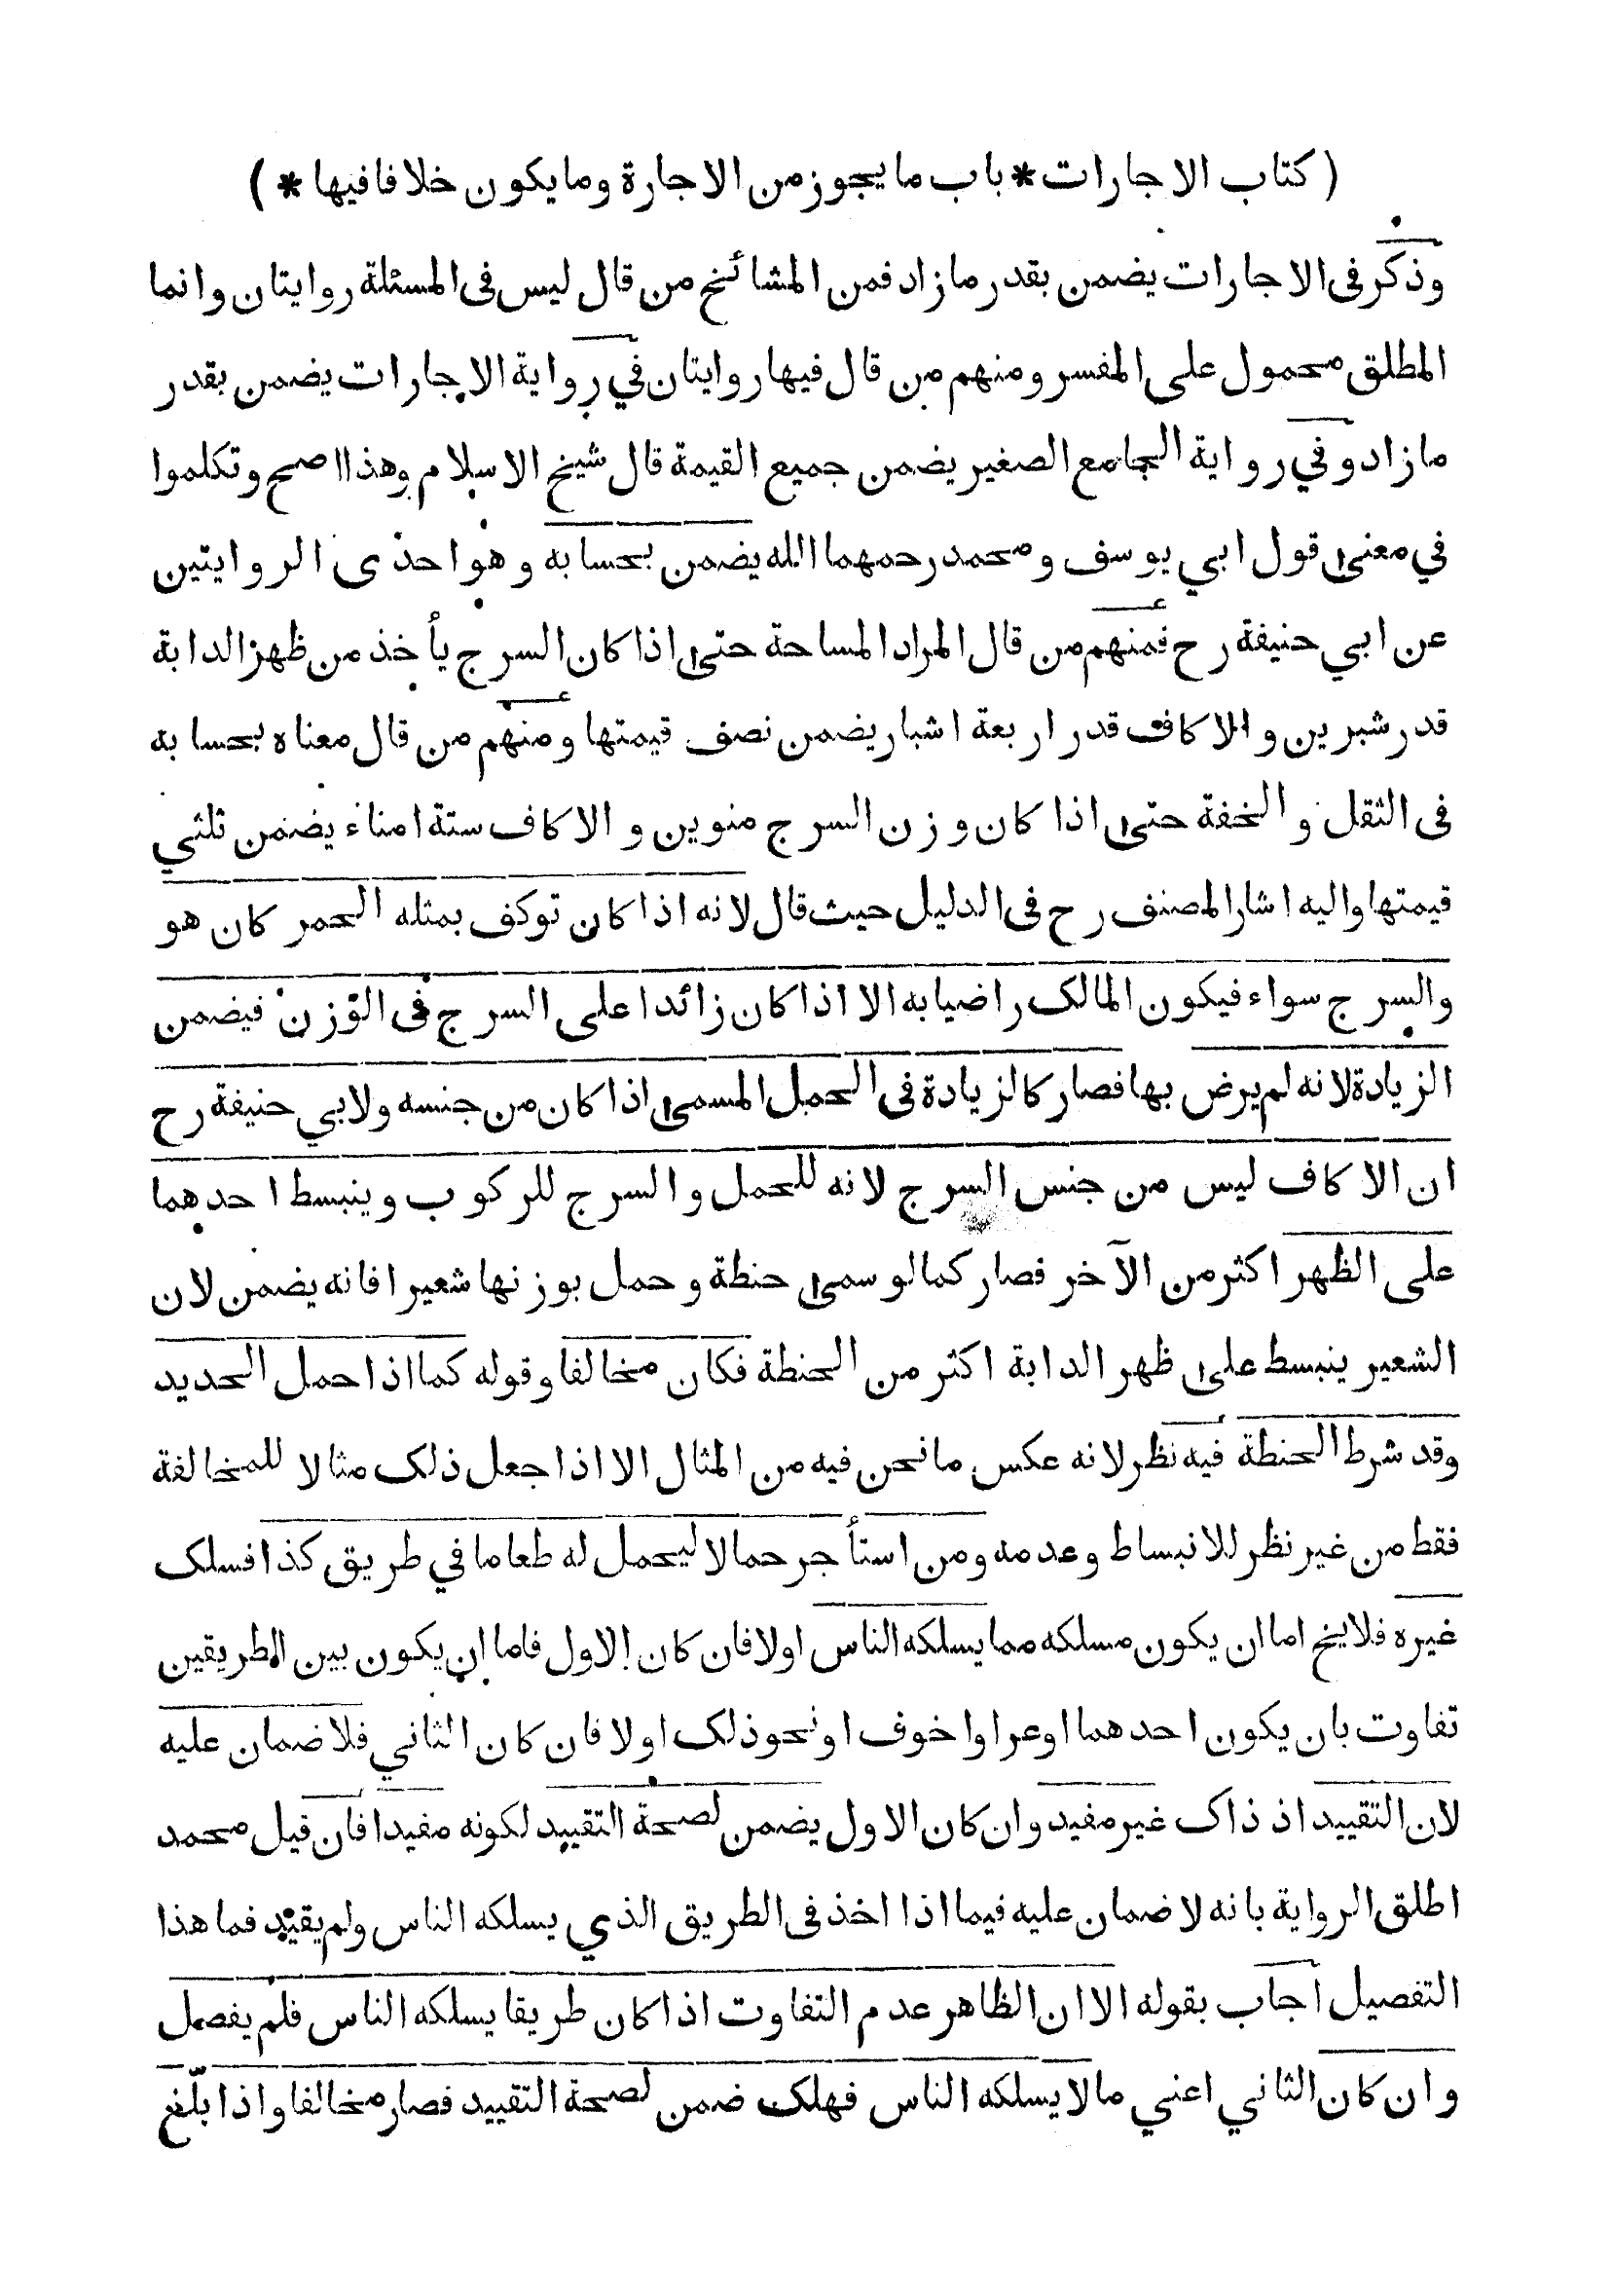 ( كتاب الاجارات * باب ما يجوز من الاجارة وما يكون خلافا فيها * )
وذكر فى الاجارات يضمن بقدر ما زاد فمن المشائخ من قال ليس فى المسئلة روايتان وانما
المطلق محمول على المفسر ومنهم من قال فيها روايتان في رواية الاجارات يضمن بقدر
ما زاد وفي رواية الجامع الصغير يضمن جميع القيمة قال شيخ الاسلام وهذا اصح وتكلموا
في معنى قول ابي يوسف ومحمد رحمهما الله يضمن بحسابه وهو احدى الروايتين
عن ابي حنيفة رح فمنهم من قال المراد المساحة حتى اذا كان السرج يأخذ من ظهر الدابة
قدر شبرين والاكاف قدر اربعة اشبار يضمن نصف قيمتها ومنهم من قال معناه بحسابه
فى الثقل والخفة حتى اذا كان وزن السرج منوين والاكاف ستة امناء يضمن ثلثي
قيمتها واليه اشار المصنف رح فى الدليل حيث قال لانه اذا كان توكف بمثله الحمر كان هو
والسرج سواء فيكون المالک راضيا به الا اذا كان زائدا على السرج فى الوزن فيضمن
الزيادة لانه لم يرض بها فصار كالزيادة فى الحمل المسمى اذا كان من جنسه ولابي حنيفة رح
ان الاكاف ليس من جنس السرج لانه للحمل والسرج للركوب وينبسط احدهما
على الظهر اكثر من الآخر فصار كما لو سمى حنطة وحمل بوزنها شعيرا فانه يضمن لان
الشعير ينبسط على ظهر الدابة اكثر من الحنطة فكان مخالفا وقوله كما اذا حمل الحديد
وقد شرط الحنطة فيه نظر لانه عكس ما نحن فيه من المثال الا اذا جعل ذلک مثالا للمخالفة
فقط من غير نظر للانبساط وعدمه ومن استأجر حمالا ليحمل له طعاما في طريق كذا فسلک
غيره فلا يخ اما ان يكون مسلكه مما يسلكه الناس اولا فان كان الاول فاما ان يكون بين الطريقين
تفاوت بان يكون احدهما اوعر او اخوف او نحو ذلک اولا فان كان الثاني فلا ضمان عليه
لان التقييد اذ ذاک غير مفيد وان كان الاول يضمن لصحة التقييد لكونه مفيدا فان قيل محمد
اطلق الرواية بانه لا ضمان عليه فيما اذا اخذ فى الطريق الذي يسلكه الناس ولم يقيد فما هذا
التفصيل اجاب بقوله الا ان الظاهر عدم التفاوت اذا كان طريقا يسلكه الناس فلم يفصل
وان كان الثاني اعني ما لا يسلكه الناس فهلک ضمن لصحة التقييد فصار مخالفا واذا بلّغ